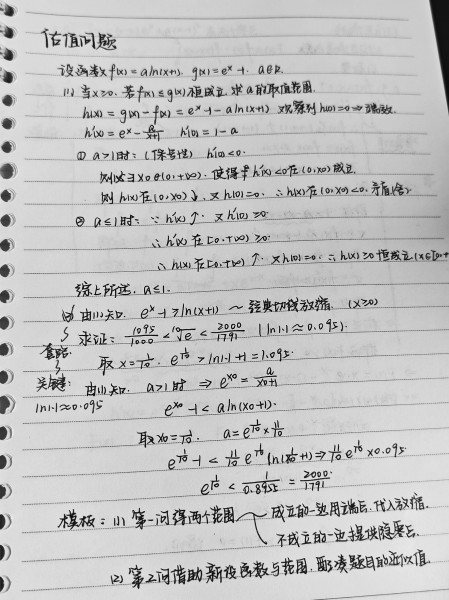 估值问题
设函数 f(x)=aln(x+1), g(x)=e^x-1, a∈R.
(1) 当x≥0, 若f(x)≤g(x)恒成立, 求a的取值范围.
h(x)=g(x)-f(x)=e^x-1-aln(x+1) 观察到h(0)=0⇒端点效.
h'(x)=e^x-a/(x+1) h'(0)=1-a
① a>1时: (保号性) h'(0)<0.
则必∃x0∈(0,+∞), 使得 h'(x)<0在(0,x0)成立
则h(x)在(0,x0)↓, 又h(0)=0. ∴h(x)在(0,x0)<0, 矛盾(舍)
② a≤1时: ∵h'(x)↑. 又h'(0)≥0
∴h'(x)在[0,+∞)≥0.
∴h(x)在[0,+∞)↑. 又h(0)=0. ∴h(x)≥0恒成立(x∈[0,+
综上所述, a≤1.
(2) 由(1)知. e^x-1≥ln(x+1) ~ 经典切线放缩. (x≥0)
求证: 1095/1000<¹⁰√e<2000/1791 (ln1.1≈0.095).
套路 取x=1/10. e^(1/10)>ln1.1+1=1.095.
关键: 由(1)知. a>1时 ⇒ e^(x0)=a/(x0+1)
ln1.1≈0.095 e^(x0)-1<aln(x0+1).
取x0=1/10. a=e^(1/10)×11/10
e^(1/10)-1<11/10 e^(1/10) ln(1/10+1)⇒11/10 e^(1/10)×0.095
e^(1/10)<1/0.8955=2000/1791
模板: (1) 第一问得两个范围 成立的一边用端点, 代入放缩.
不成立的一边提供隐零点.
(2) 第2问借助新设函数与范围. 配凑题目的近似值.